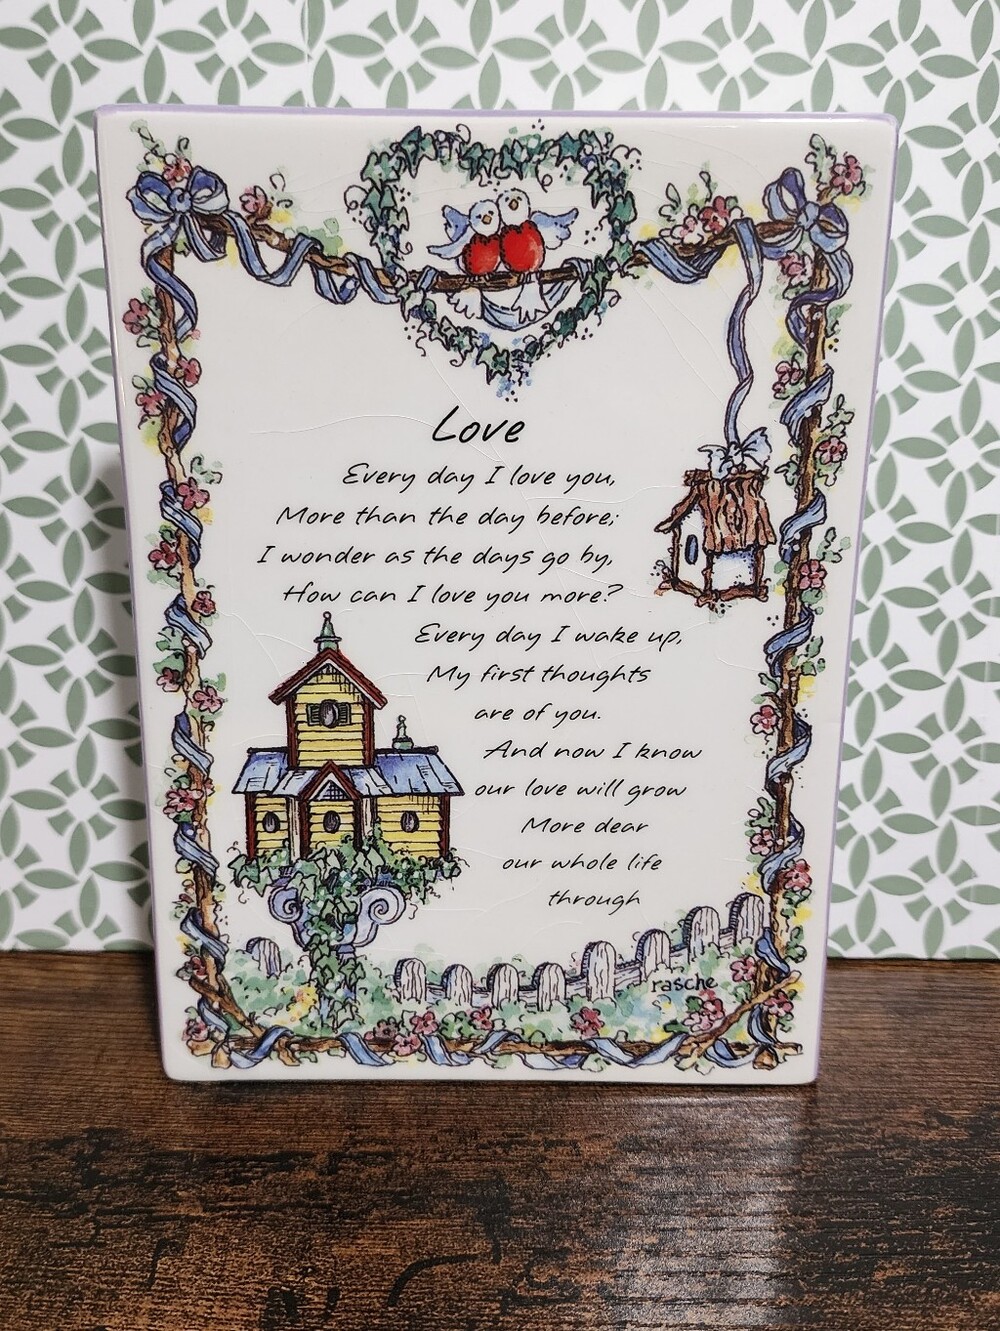 Love
Every day I love you,
More than the day before;
I wonder as the days go by,
How can I love you more?
Every day I wake up,
My first thoughts
are of you.
And now I know
our love will grow
More dear
our whole life
through
rasche